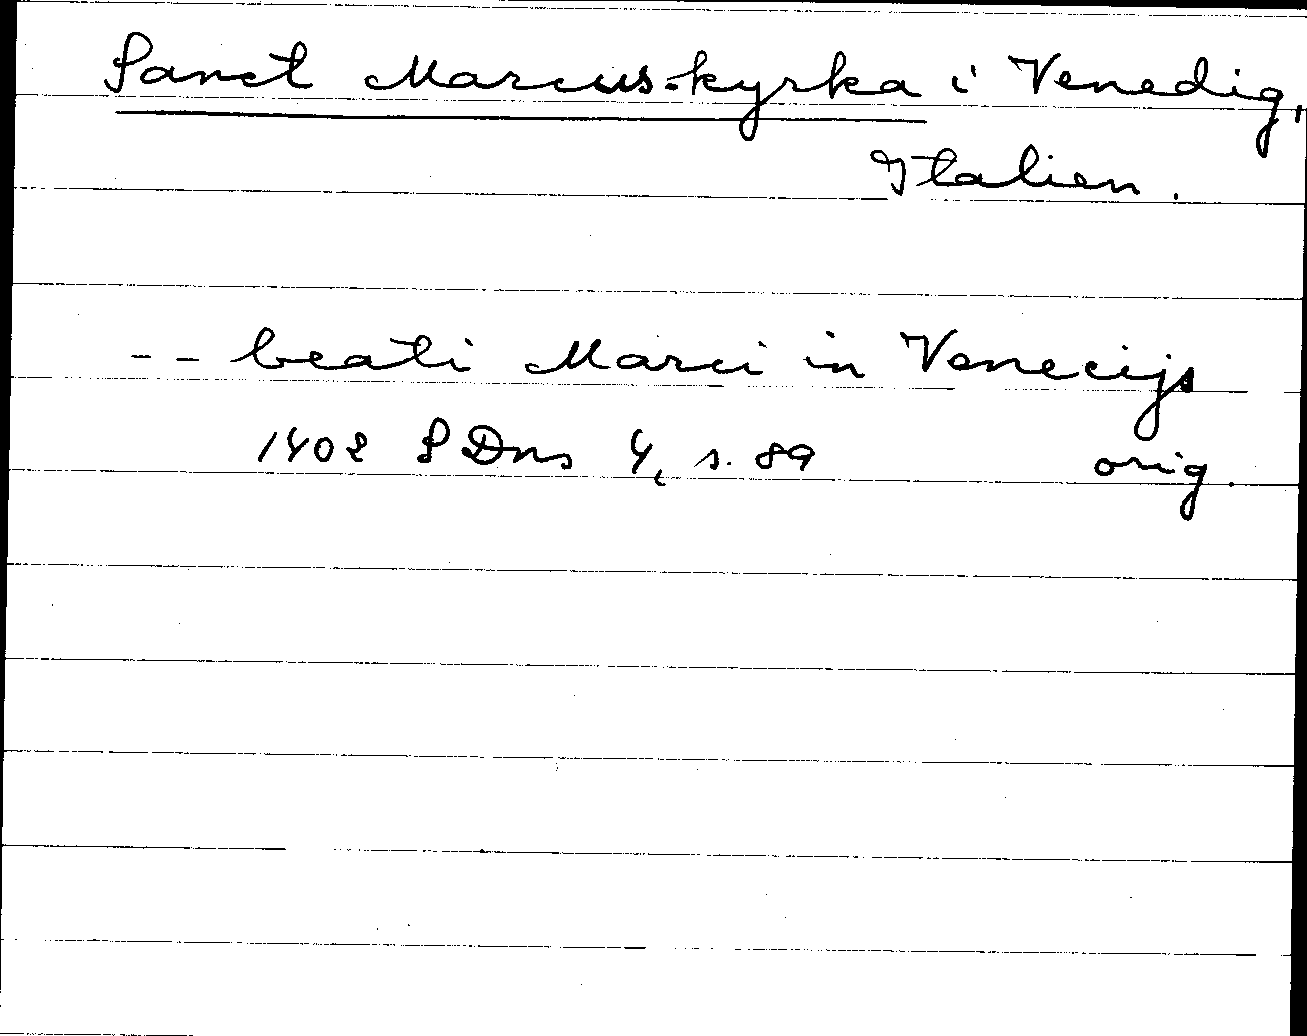 Sanct Marcus-kyrka i Venedig,
Italien.
-- beati Marci in Venecijs
1408 SDns 4, s. 89 orig.